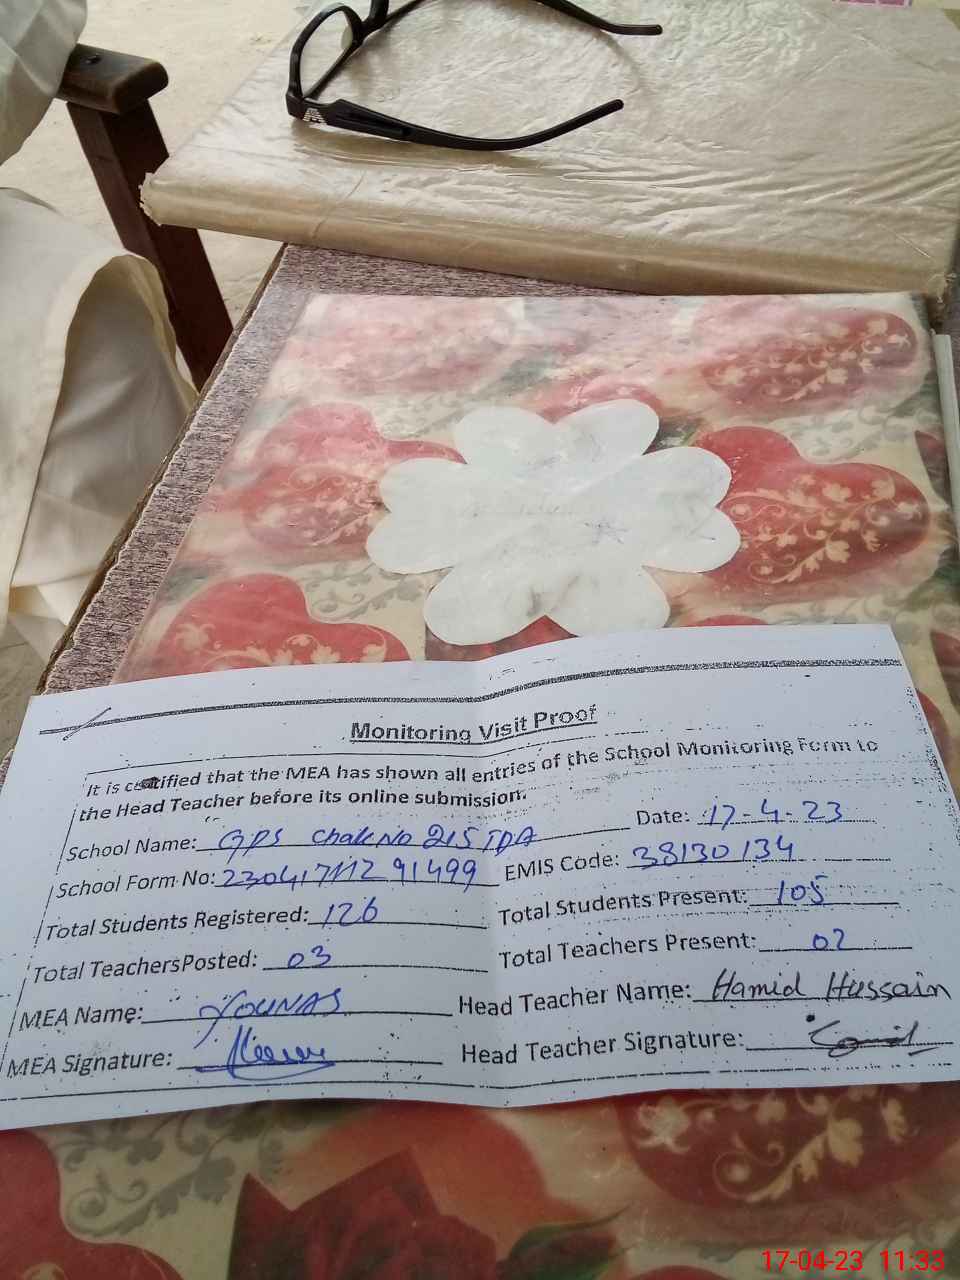 Monitoring Visit Proof
It is certified that the MEA has shown all entries of the School Monitoring Form to
the Head Teacher before its online submission.
School Name: GPS Chak No 215 TDA Date: 17-4-23
School Form No: 23041711291499 EMIS Code: 38130134
Total Students Registered: 126 Total Students Present: 105
Total Teachers Posted: 03 Total Teachers Present: 02
MEA Name: YOUNAS Head Teacher Name: Hamid Hussain
MEA Signature: Head Teacher Signature:
17-04-23 11:33